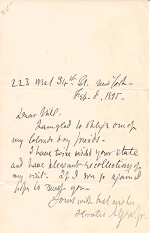 223 West 34th St. New York
Feb. 8, 1895.
Dear Will:
I am glad to oblige one of
my Colorado boy friends.
I have twice visited your State
and have pleasant recollections of
my visit. If I ever go again I
hope to meet you.
Yours with best wishes,
Horatio Alger Jr.